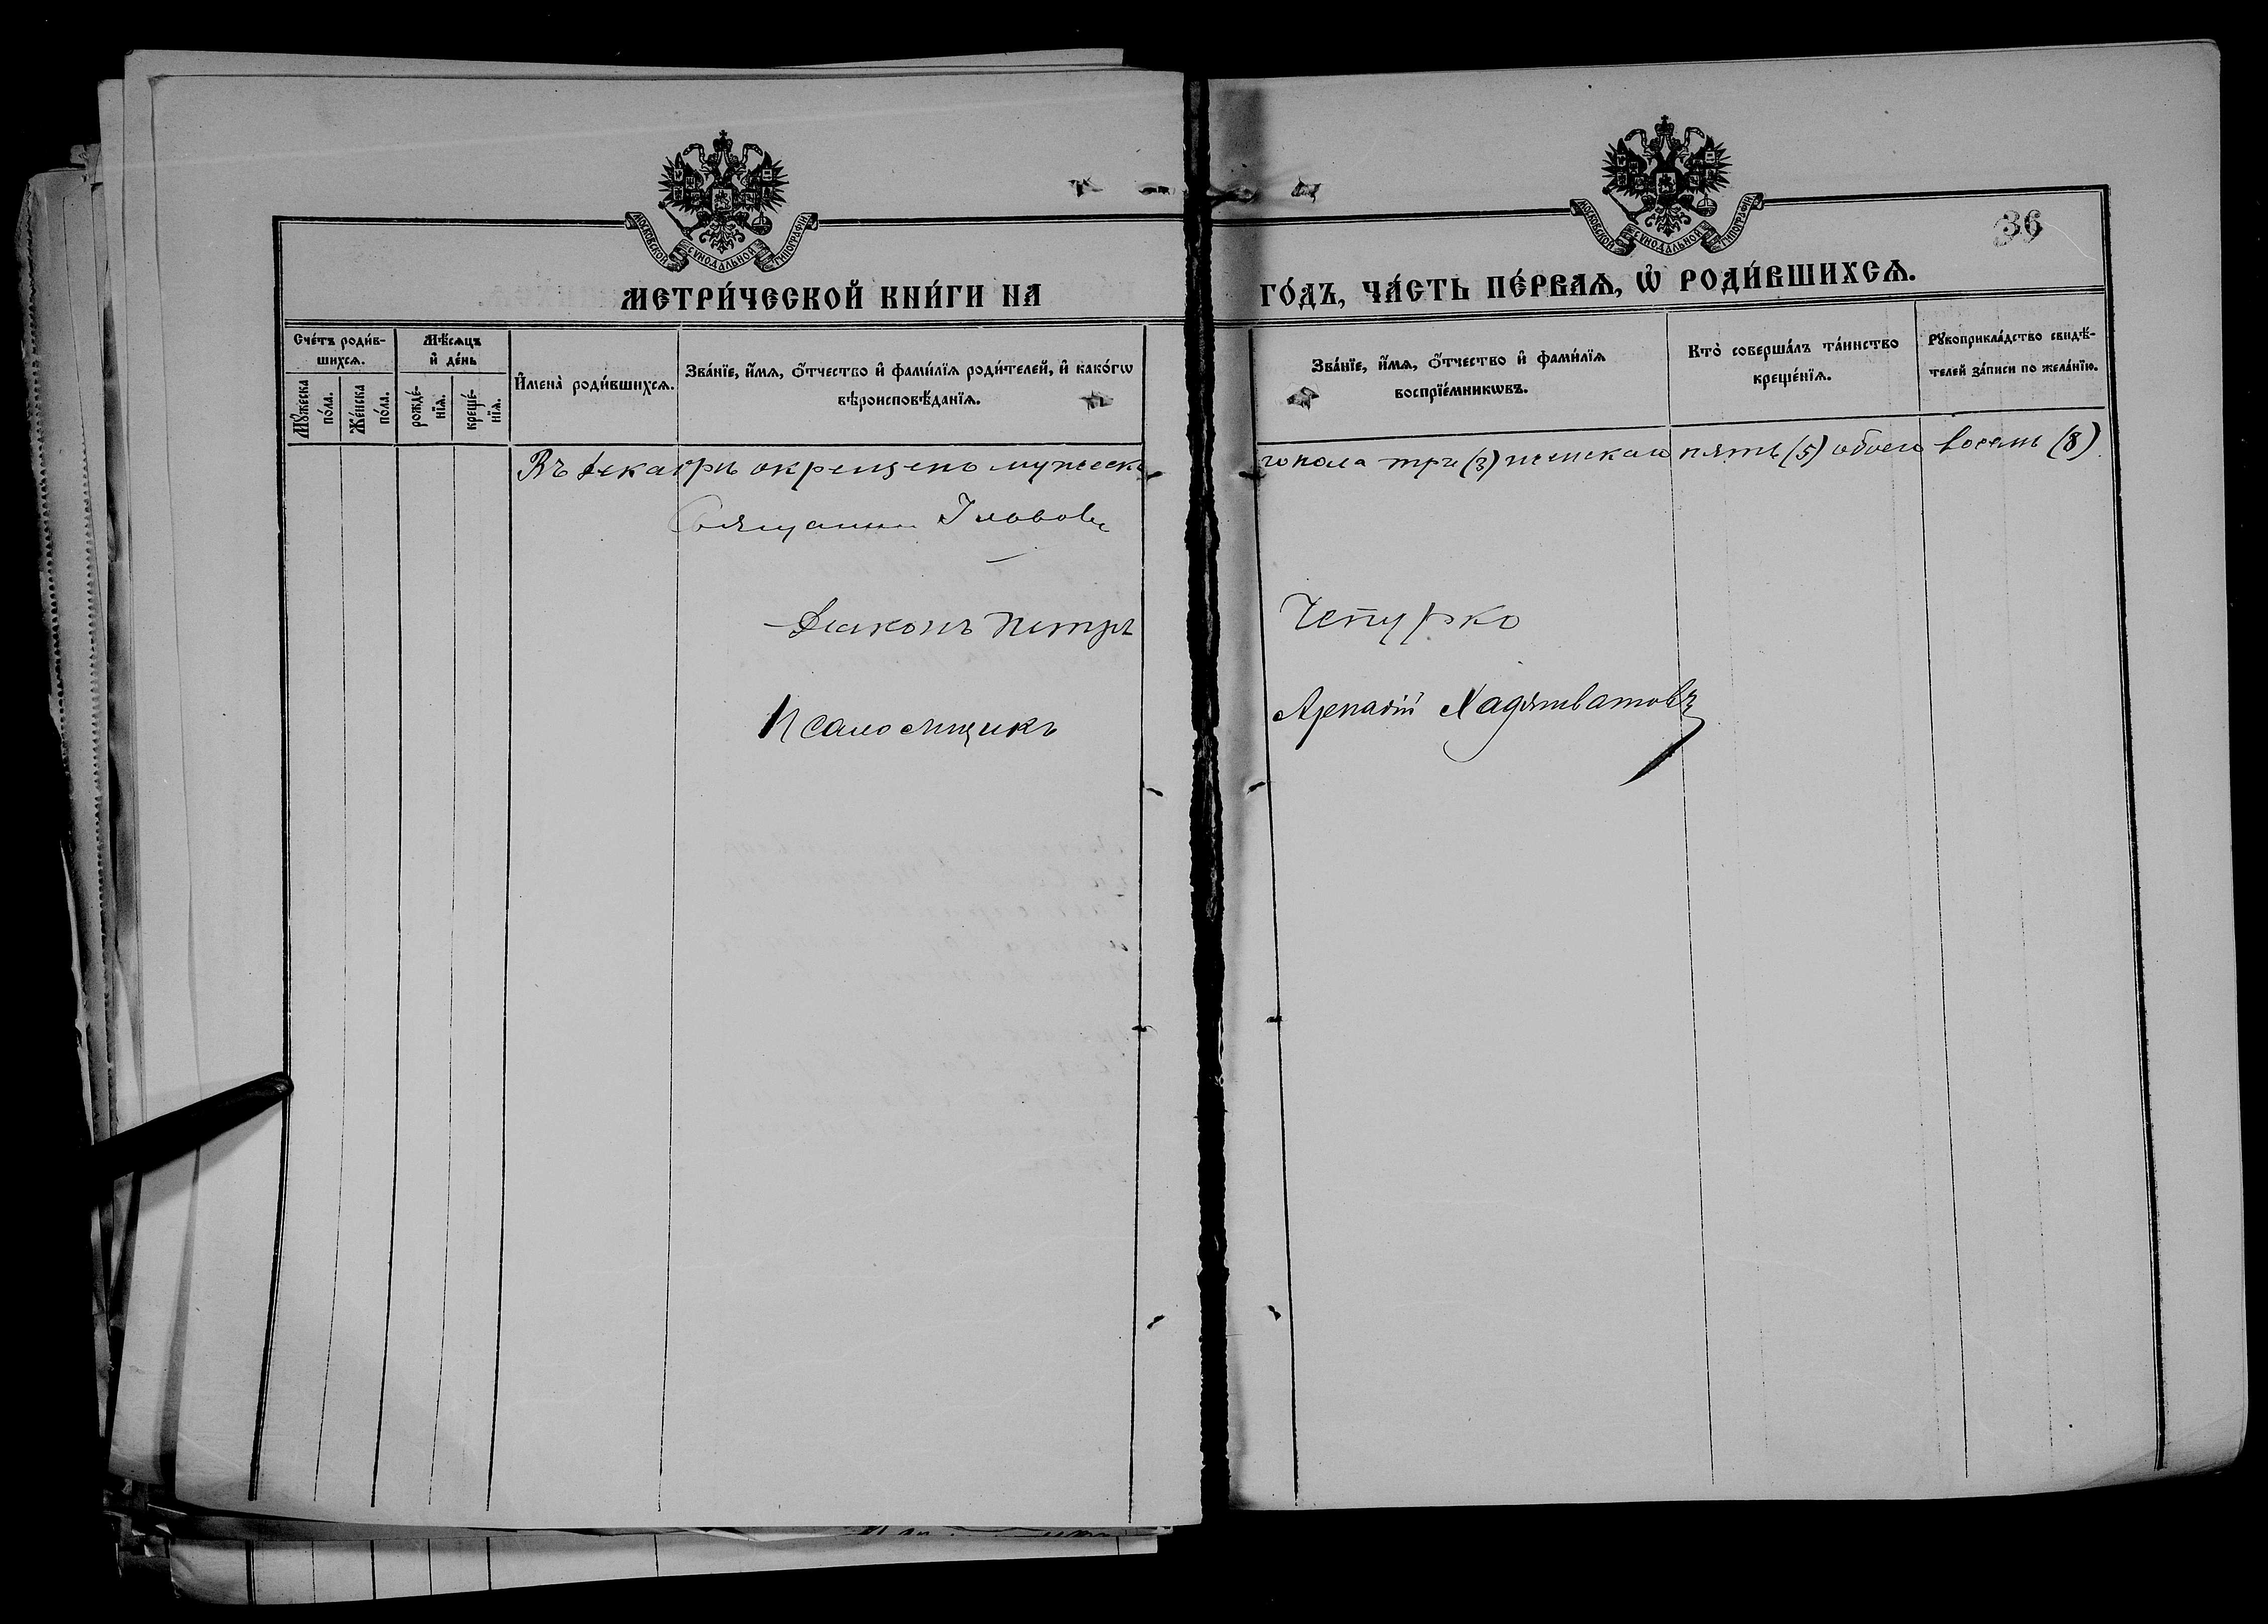 МОСКОВСКОЙ СѴНОДАЛЬНОЙ ТИПОГРАФІИ
МОСКОВСКОЙ СѴНОДАЛЬНОЙ ТИПОГРАФІИ
36
МЕТРИ́ЧЕСКОЙ КНИ́ГИ НА ГО́ДЪ, ЧА́СТЬ ПЕ́РВАѦ, Ѿ РОДИ́ВШИХСѦ.
Сче́тъ роди́в-
шихсѧ.
Мꙋ́жеска
по́ла.
Же́нска
по́ла.
Мѣ́сѧцъ
и҆ де́нь
рожде́-
нїѧ.
креще́-
нїѧ.
И҆мена̀ роди́вшихсѧ.
Зва́нїе, и҆́мѧ, ѻ҆́тчество и҆ фами́лїѧ роди́телей, и҆ како́гѡ
вѣроисповѣ́данїѧ.
Зва́нїе, и҆́мѧ, ѻ҆́тчество и҆ фами́лїѧ
воспрїе́мникѡвъ.
Кто̀ соверша́лъ та́инство
креще́нїѧ.
Рꙋкоприкла́дство свидѣ́-
телей за́писи по жела́нїю.
Въ декабрѣ окрещено мужеска го пола три (3) женскаго пять (5) обоего восемь (8)
Священникъ
Діаконъ Петръ Чепурко
Псаломщикъ Аркадій